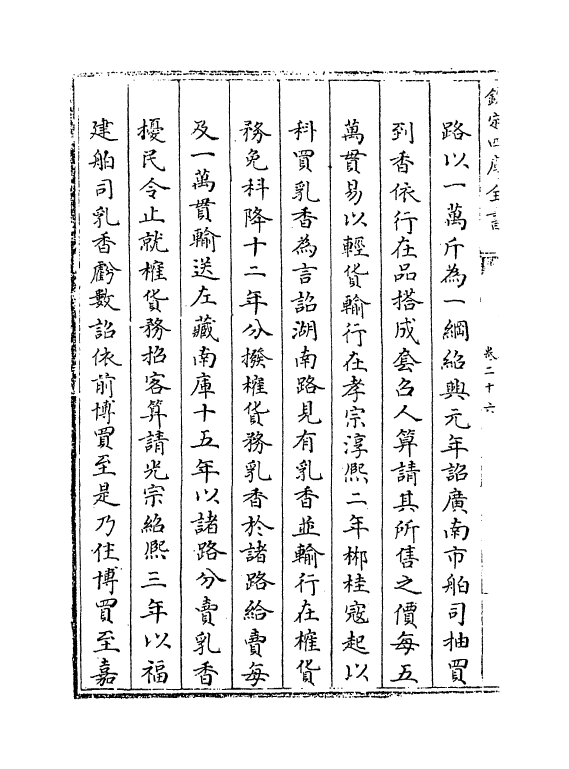 欽定四庫全書
卷二十六
路以一萬斤為一綱紹興元年詔廣南市舶司抽買
到香依行在品搭成套召人算請其所售之價每五
萬貫易以輕貨輸行在孝宗淳熙二年郴桂寇起以
科買乳香為言詔湖南路見有乳香並輸行在榷貨
務免科降十二年分撥榷貨務乳香於諸路給賣每
及一萬貫輸送左藏南庫十五年以諸路分賣乳香
擾民令止就榷貨務招客算請光宗紹熙三年以福
建舶司乳香虧數詔依前博買至是乃住博買至嘉